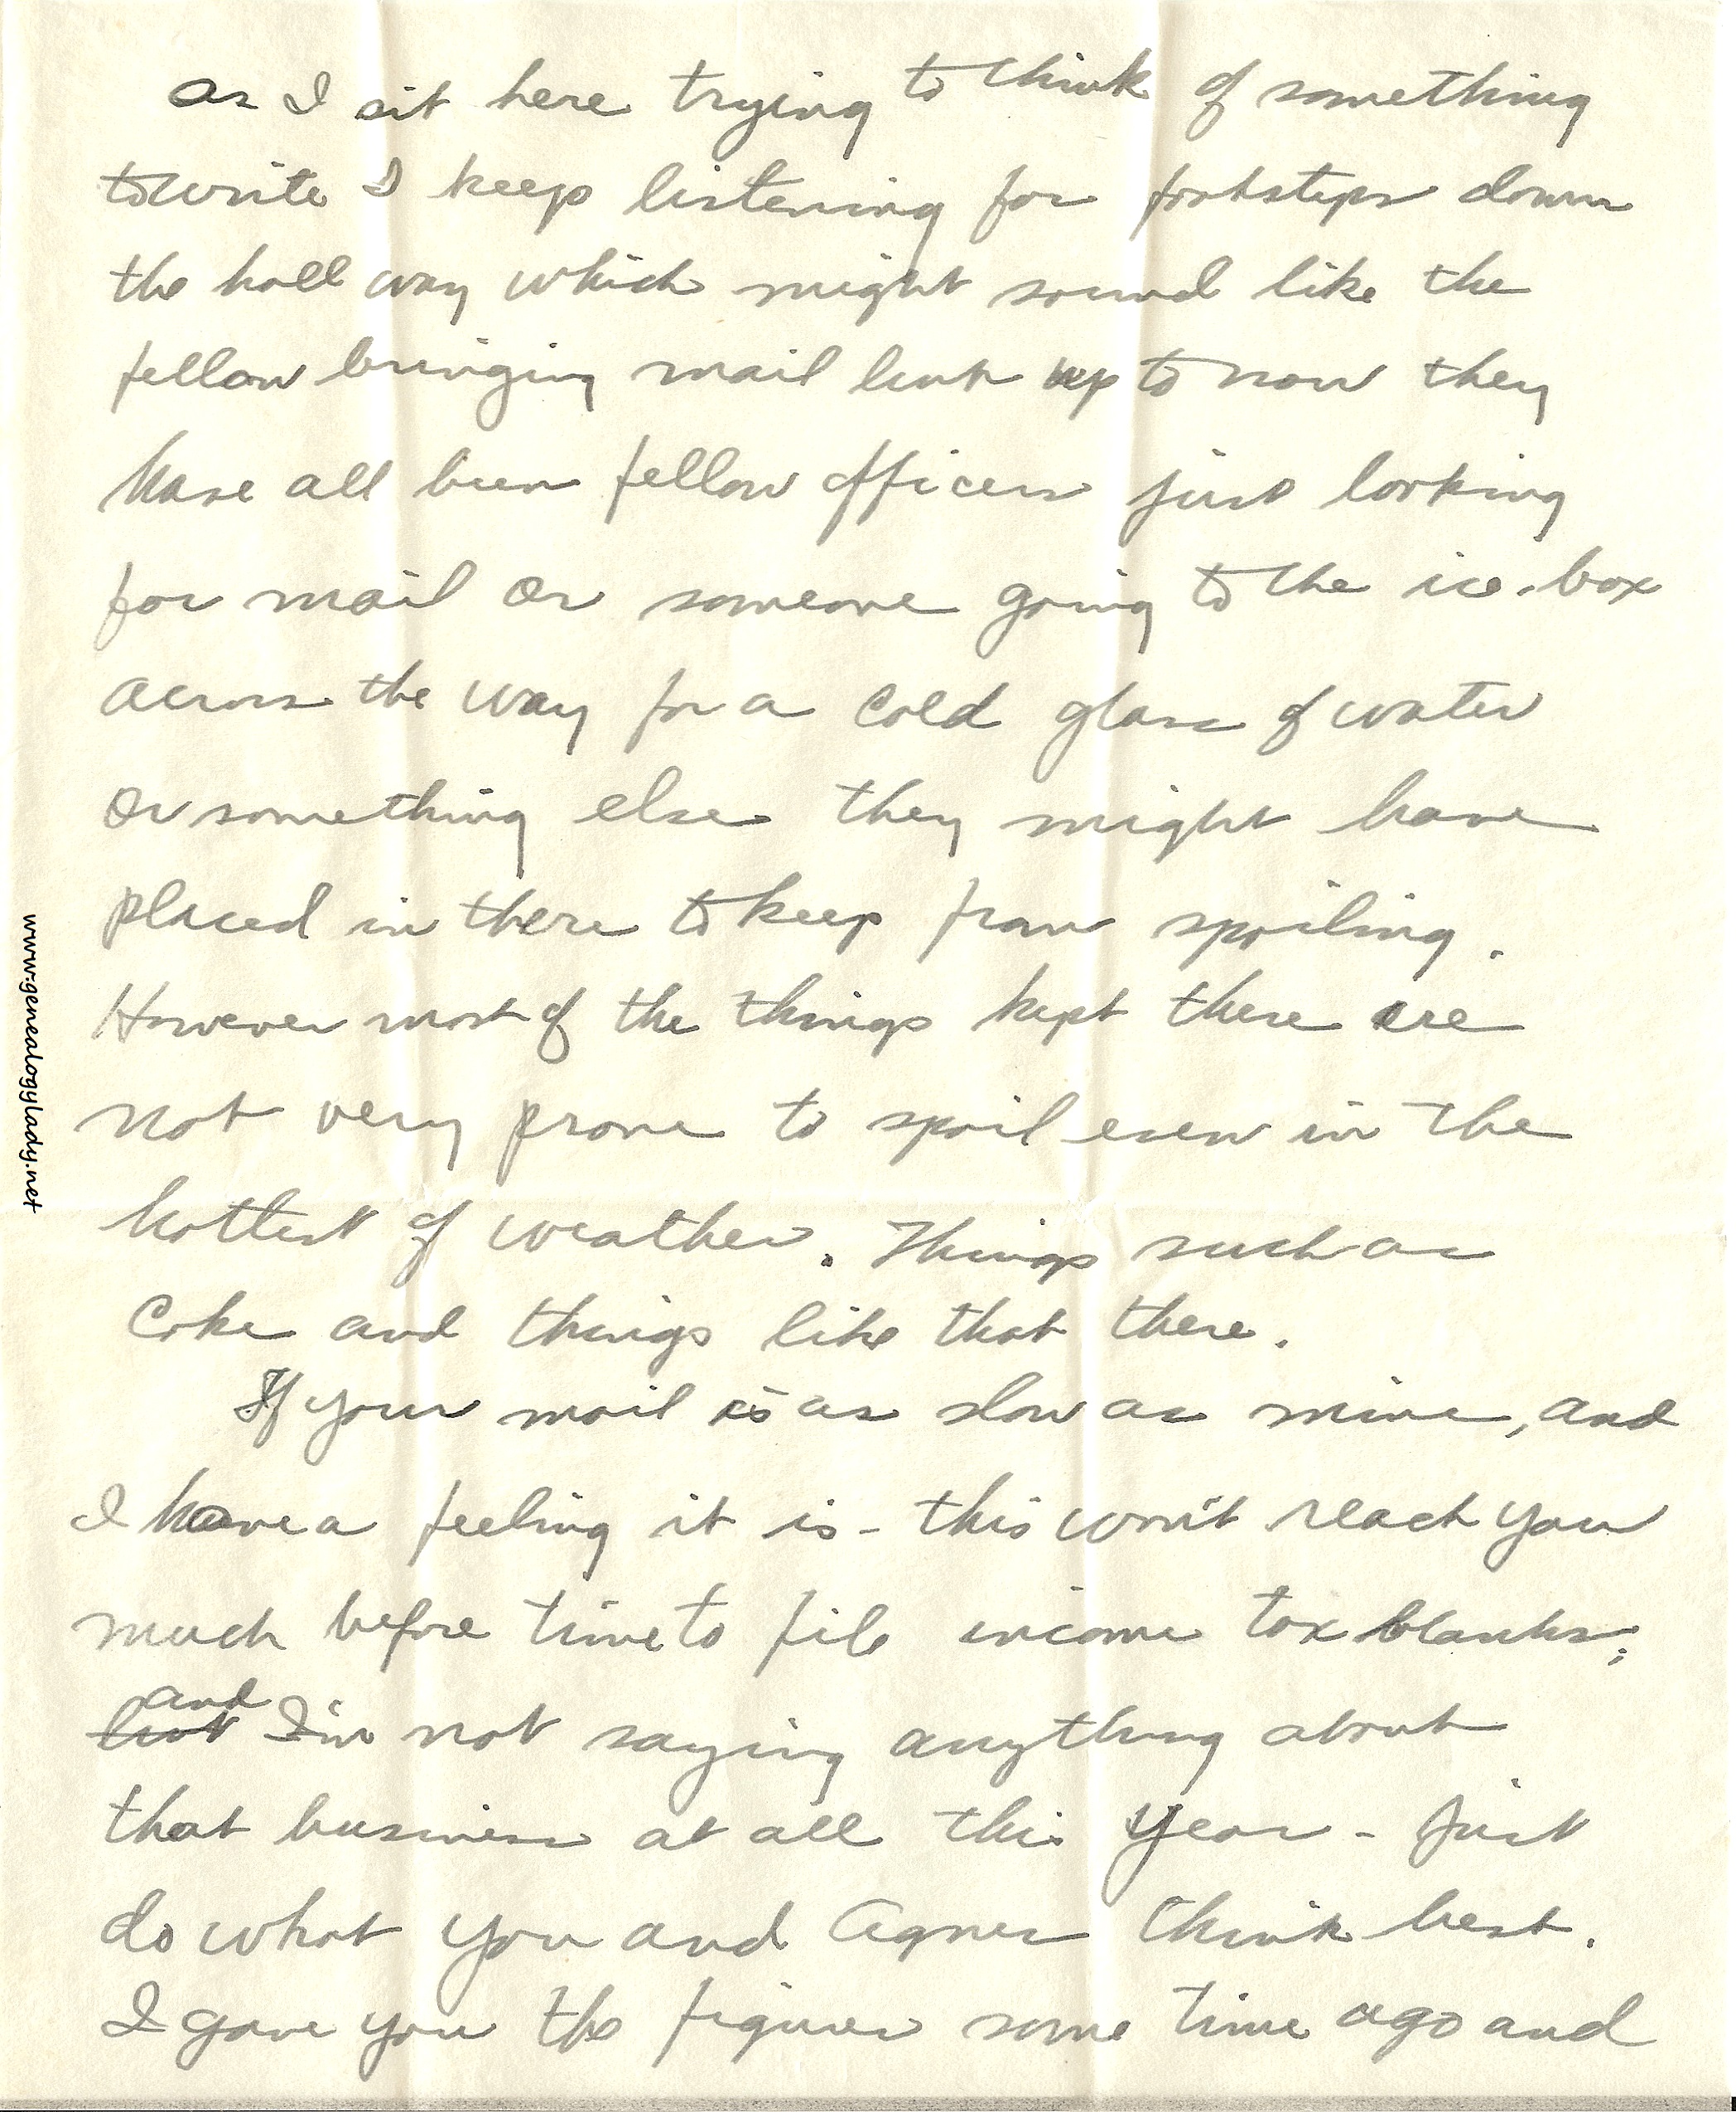 As I sit here trying to think of something
to write I keep listening for footsteps down
the hall way which might sound like the
fellow bringing mail but up to now they
have all been fellow officers just looking
for mail or someone going to the ice-box
across the way for a cold glass of water
or something else they might have
placed in there to keep from spoiling.
However most of the things kept there are
not very prone to spoil even in the
hottest of weather. Things such as
Coke and things like that there.
If your mail is as slow as mine, and
I have a feeling it is - this won't reach you
much before time to file income tax blanks;
and
but I'm not saying anything about
that business at all this year - Just
do what you and Agnes think best.
I gave you the figures some time ago and
www.genealogylady.net